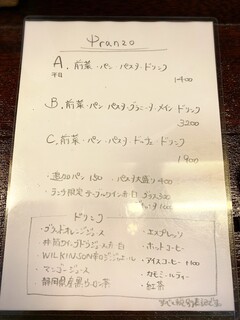 Pranzo
A. 前菜・パン パスタ・ドリンク
平日 1400
B. 前菜・パン パスタ・グラニータ・メイン ドリンク
3200
C. 前菜・パン パスタ・ドルチェ・ドリンク
1900
・追加パン 150 ・パスタ大盛り 400
・ランチ限定 テーブルワイン赤白 グラス 500
ドリンク
・ブラッドオレンジジュース
・エスプレッソ
・ホットコーヒー
・WILKINSON辛口ジンジャエール
・アイスコーヒー +100
・マンゴージュース
・カモミールティー
・紅茶